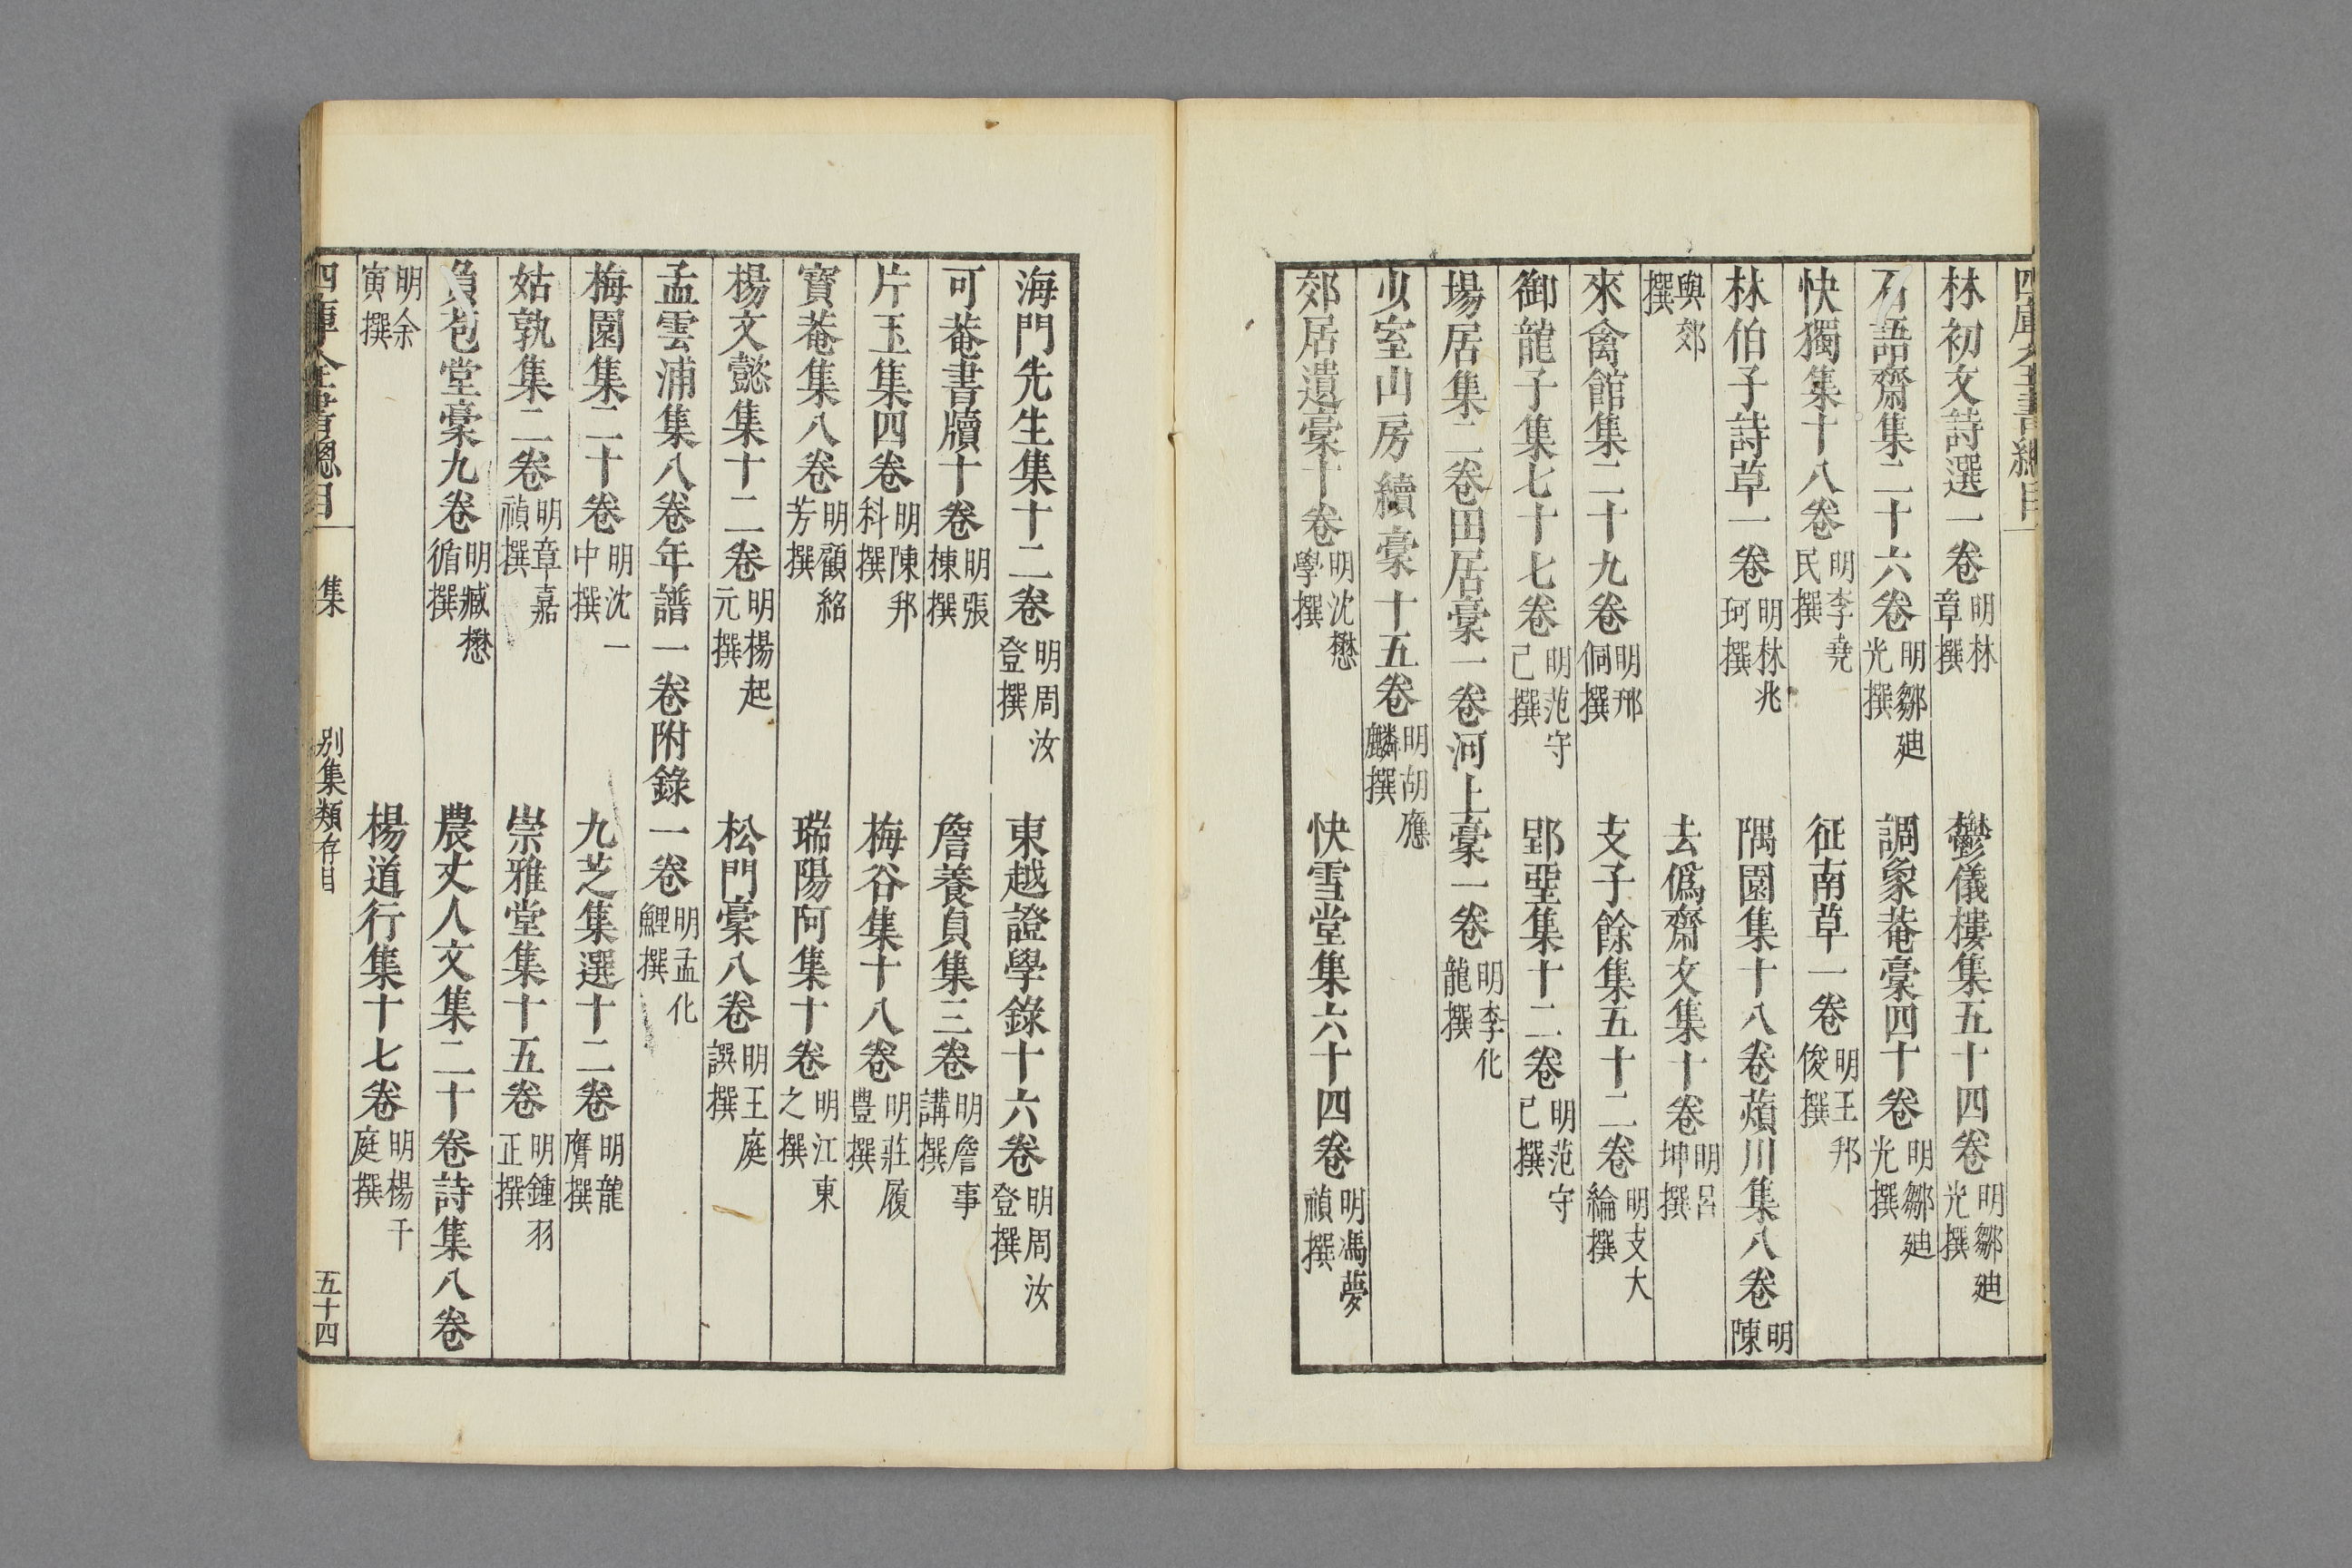 林初文詩選一卷 明林章撰 鬱儀樓集五十四卷 明鄒迪光撰
石語齋集二十六卷 明鄒迪光撰 調象菴稾四十卷 明鄒迪光撰
快獨集十八卷 明李堯民撰 征南草一卷 明王邦俊撰
林伯子詩草一卷 明林兆珂撰 隅園集十八卷蘋川集八卷 明陳
與郊撰 去僞齋文集十卷 明呂坤撰
來禽館集二十九卷 明邢侗撰 支子餘集五十二卷 明支大綸撰
御龍子集七十七卷 明范守己撰 郢堊集十二卷 明范守己撰
場居集二卷田居稾一卷河上稾一卷 明李化龍撰
少室山房續稾十五卷 明胡應麟撰
郊居遺稾十卷 明沈懋學撰 快雪堂集六十四卷 明馮夢禎撰
海門先生集十二卷 明周汝登撰 東越證學錄十六卷 明周汝登撰
可菴書牘十卷 明張棟撰 詹養貞集三卷 明詹事講撰
片玉集四卷 明陳邦科撰 梅谷集十八卷 明莊履豊撰
寶菴集八卷 明顧紹芳撰 瑞陽阿集十卷 明江東之撰
楊文懿集十二卷 明楊起元撰 松門稾八卷 明王庭譔撰
孟雲浦集八卷年譜一卷附錄一卷 明孟化鯉撰
梅園集二十卷 明沈一中撰 九芝集選十二卷 明龍膺撰
姑孰集二卷 明章嘉禎撰 崇雅堂集十五卷 明鍾羽正撰
負苞堂稾九卷 明臧懋循撰 農丈人文集二十卷詩集八卷
明余寅撰 楊道行集十七卷 明楊于庭撰
四庫全書總目 集 別集類存目 五十四